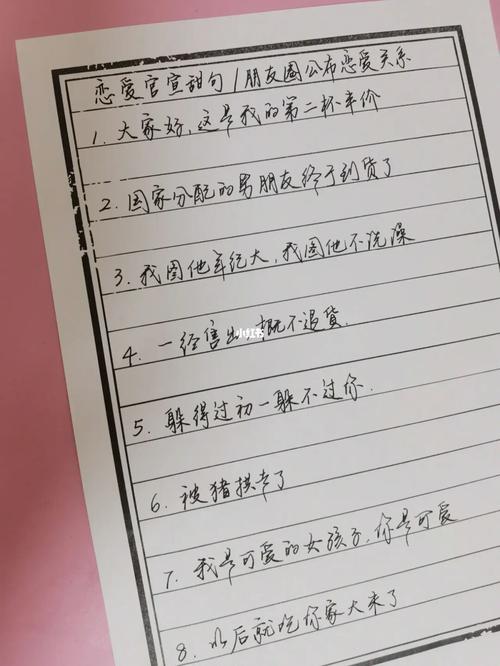 恋爱官宣甜句/朋友圈公布恋爱关系
1. 大家好,这是我的第二杯半价
2. 国家分配的男朋友终于到货了
3. 我图他年纪大,我图他不洗澡
4. 一经售出 概不退货.
小红书
5. 躲得过初一躲不过你.
6. 被猪拱走了
7. 我是可爱的女孩子,你是可爱
8. 以后就吃你家大米了